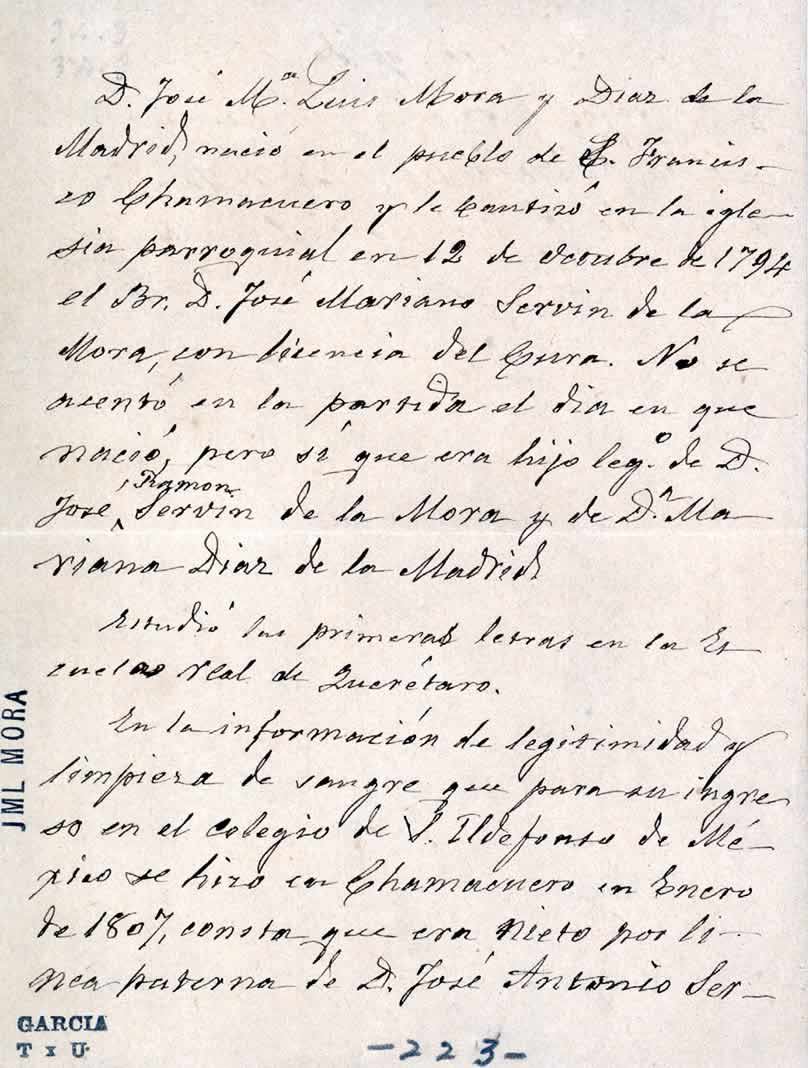 D. José M.ª Luis Mora y Diaz de la
Madrid, nació en el pueblo de S. Francis-
co Chamacuero y le bautizó en la igle-
sia parroquial en 12 de octubre de 1794
el Br. D. José Mariano Servin de la
Mora, con licencia del Cura. No se
asentó en la partida el dia en que
nació, pero sí que era hijo leg.º de D.
José Ramon Servin de la Mora y de D.ª Ma-
riana Diaz de la Madrid
Estudió las primeras letras en la Es
cuela real de Querétaro.
En la información de legitimidad y
limpieza de sangre que para su ingre
so en el colegio de S. Ildefonso de Mé-
xico se hizo en Chamacuero en Enero
de 1807, consta que era nieto por lí-
nea paterna de D. José Antonio Ser-
JML MORA
GARCIA
T x U
-223-